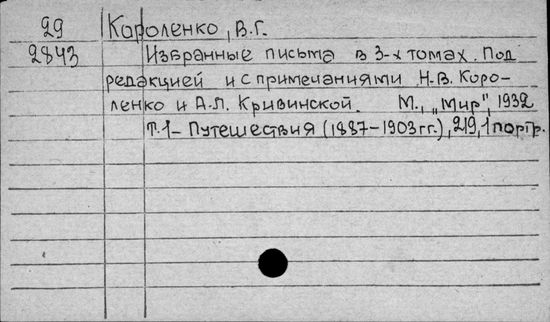 29 Короленко, В.Г.
2843 Избранные письма в 3-х томах. Под
редакцией и с примечаниями Н-В. Коро-
ленко и А-Л. Кривинской. М., „Мир", 1932
Т.1- Путешествия (1887-1903 гг.), 219, 1 портр.